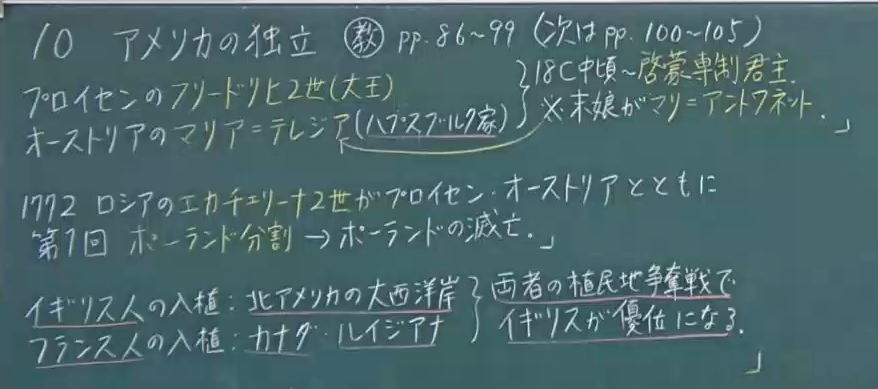 10 アメリカの独立 ㊙教 pp.86~99 (次はpp.100~105)
プロイセンのフリードリヒ2世(大王)
オーストリアのマリア=テレジア(ハプスブルク家)
18C中頃~啓蒙専制君主.
※末娘がマリ=アントワネット.」
1772 ロシアのエカチェリーナ2世がプロイセン・オーストリアとともに
第1回 ポーランド分割→ポーランドの滅亡.」
イギリス人の入植:北アメリカの大西洋岸
フランス人の入植:カナダ・ルイジアナ
両者の植民地争奪戦で
イギリスが優位になる.」